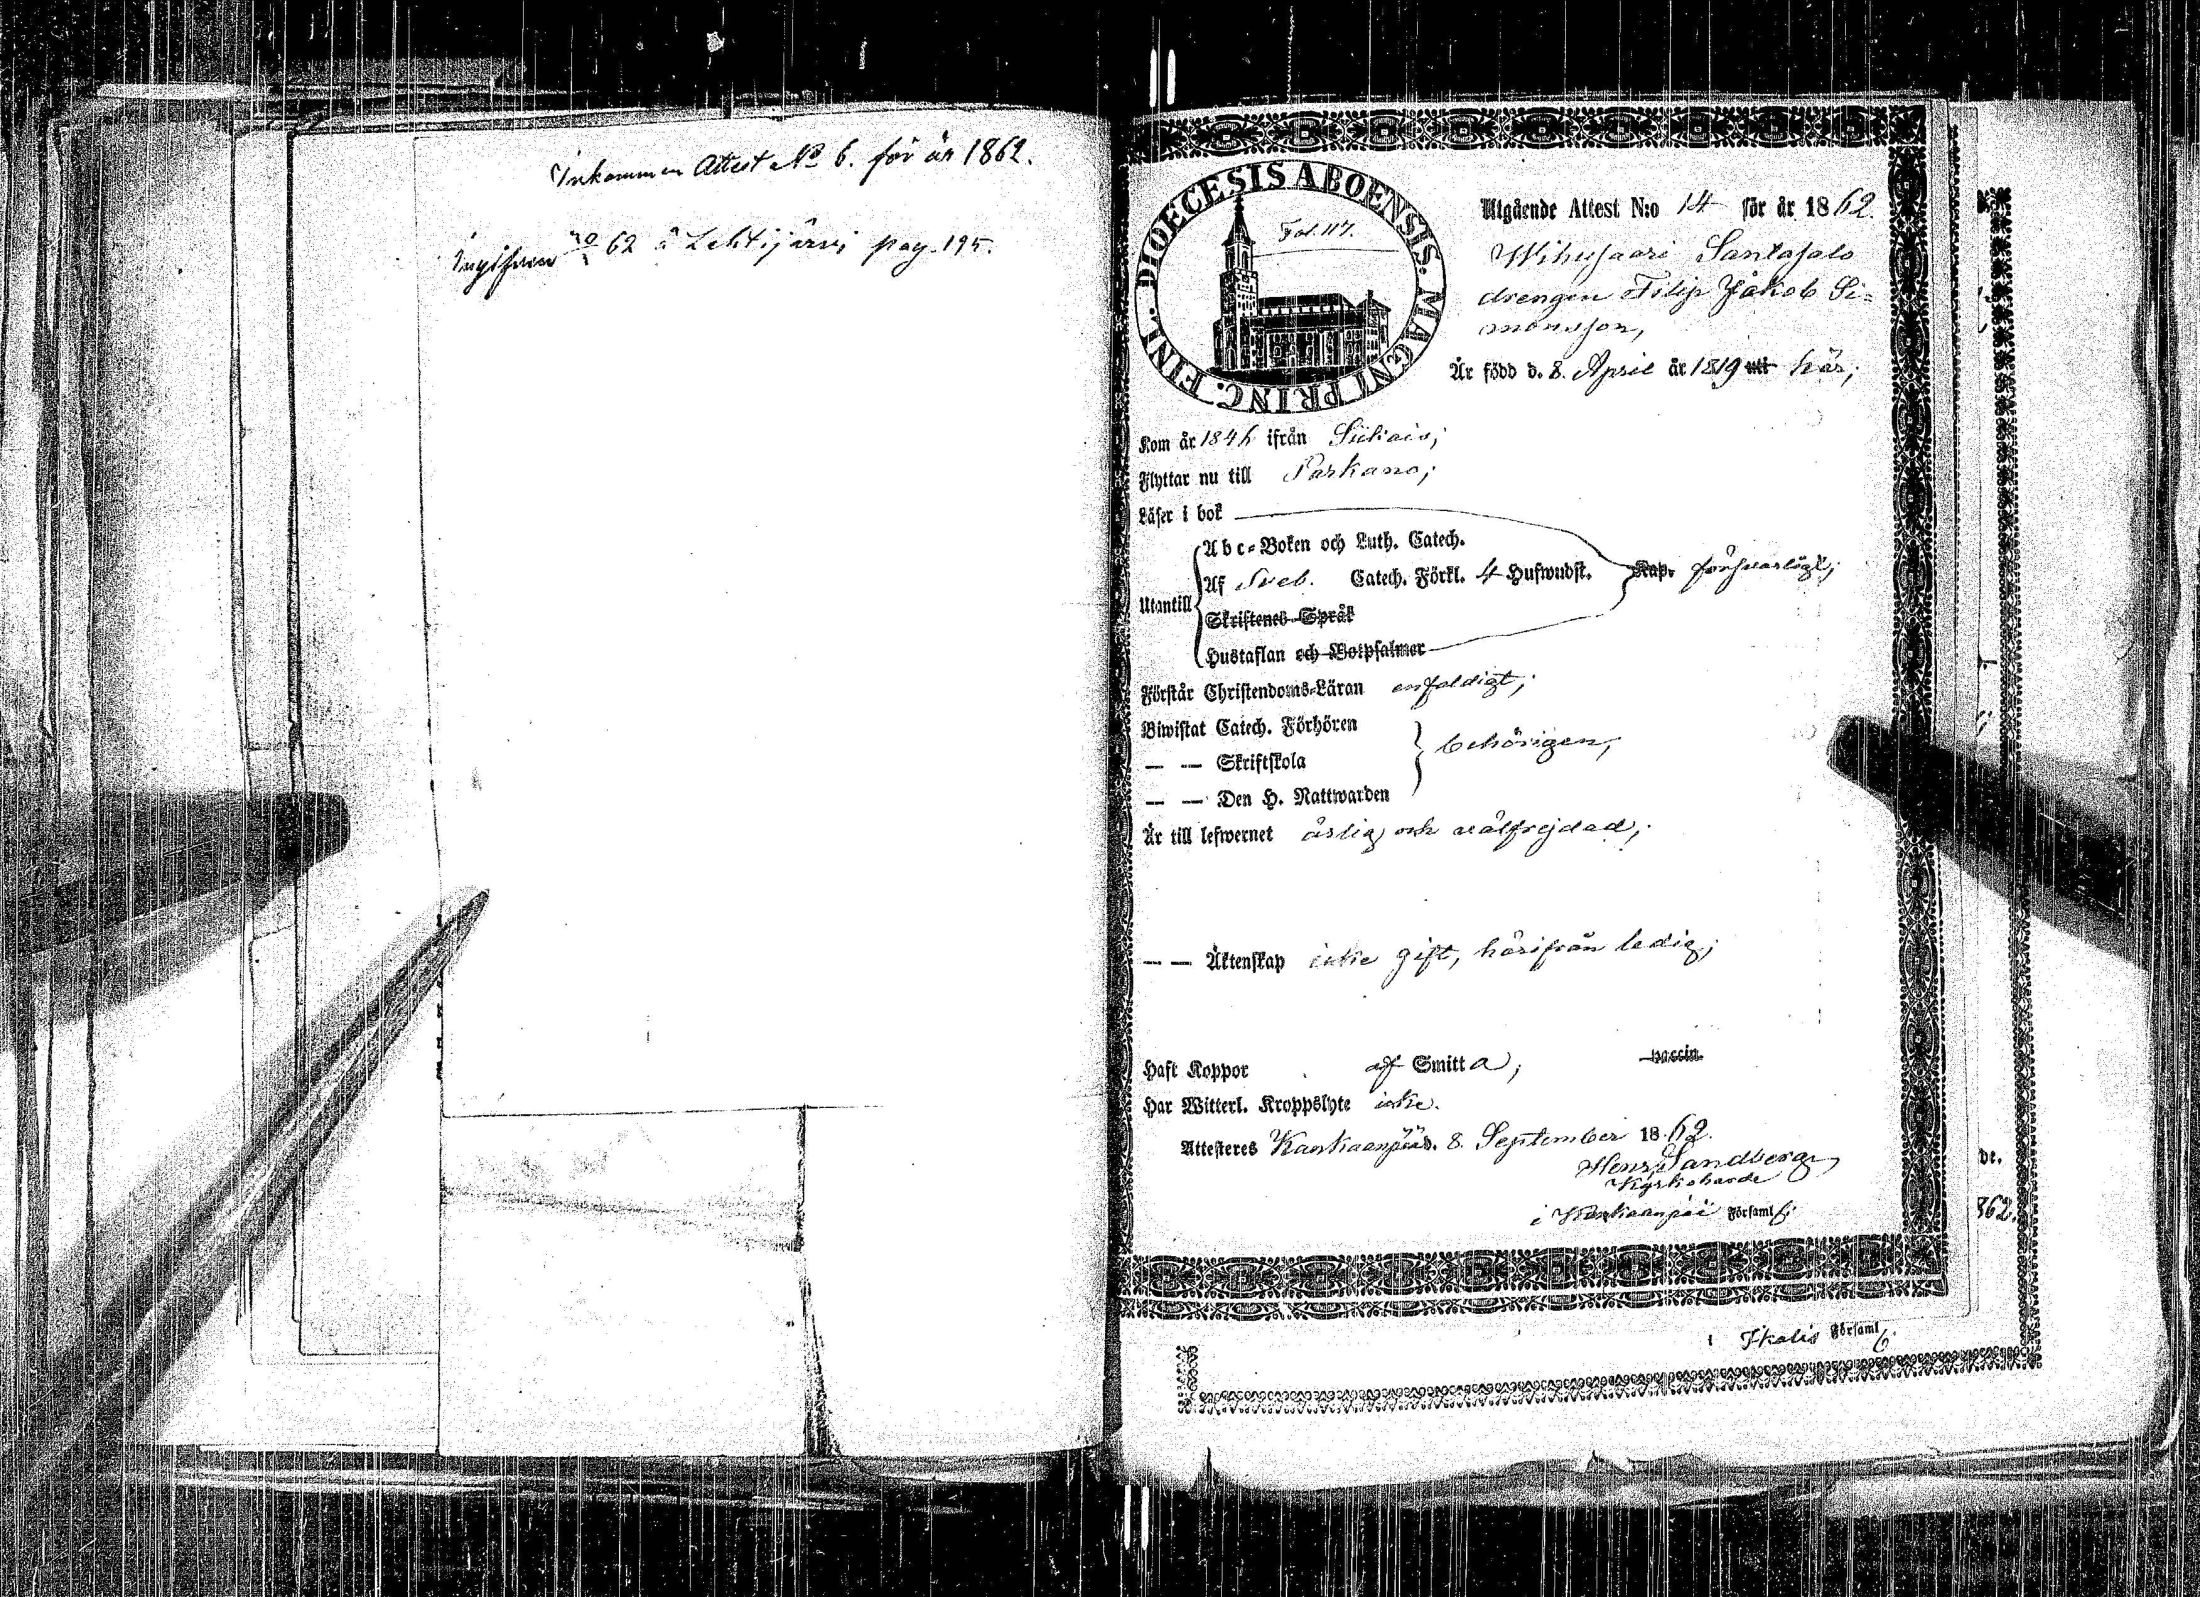 Inkommen Attest No 6. för år 1862.
Ingifven 62 å Lehtijärvi pag. 195.
DIOECESIS ABOENSIS. MAGNI PRINC. FINL.
Fol. 117.
Utgående Attest N:o 14 för år 1862.
Wihusaari Santasalo
drengen Filip Jakob Si=
monsson,
Är född d. 8. April år 1819 uti här;
Kom år 1846 ifrån Siikais;
Flyttar nu till Parkano;
Läser i bok
Abc-Boken och Luth. Catech.
Af Sveb. Catech. Förkl. 4 Hufwudst. Kap. försvarligt;
Utantill
Skriftenes Språk
Hustaflan och Botpsalmer
Förstår Christendoms-Läran enfaldigt;
Biwistat Catech. Förhören
— — Skriftskola
behörigen;
— — Den H. Nattwarden
Är till lefwernet ärlig och välfrejdad;
— — Äktenskap icke gift, härifrån ledig;
Haft Koppor af Smitta; vaccin.
Har Witterl. Kroppslyte icke.
Attesteres Kankaanpää d. 8. September 1862.
Henr. Sandberg
Kyrkoherde
i Kankaanpää Församl.
de.
862.
i Ikalis Församl.